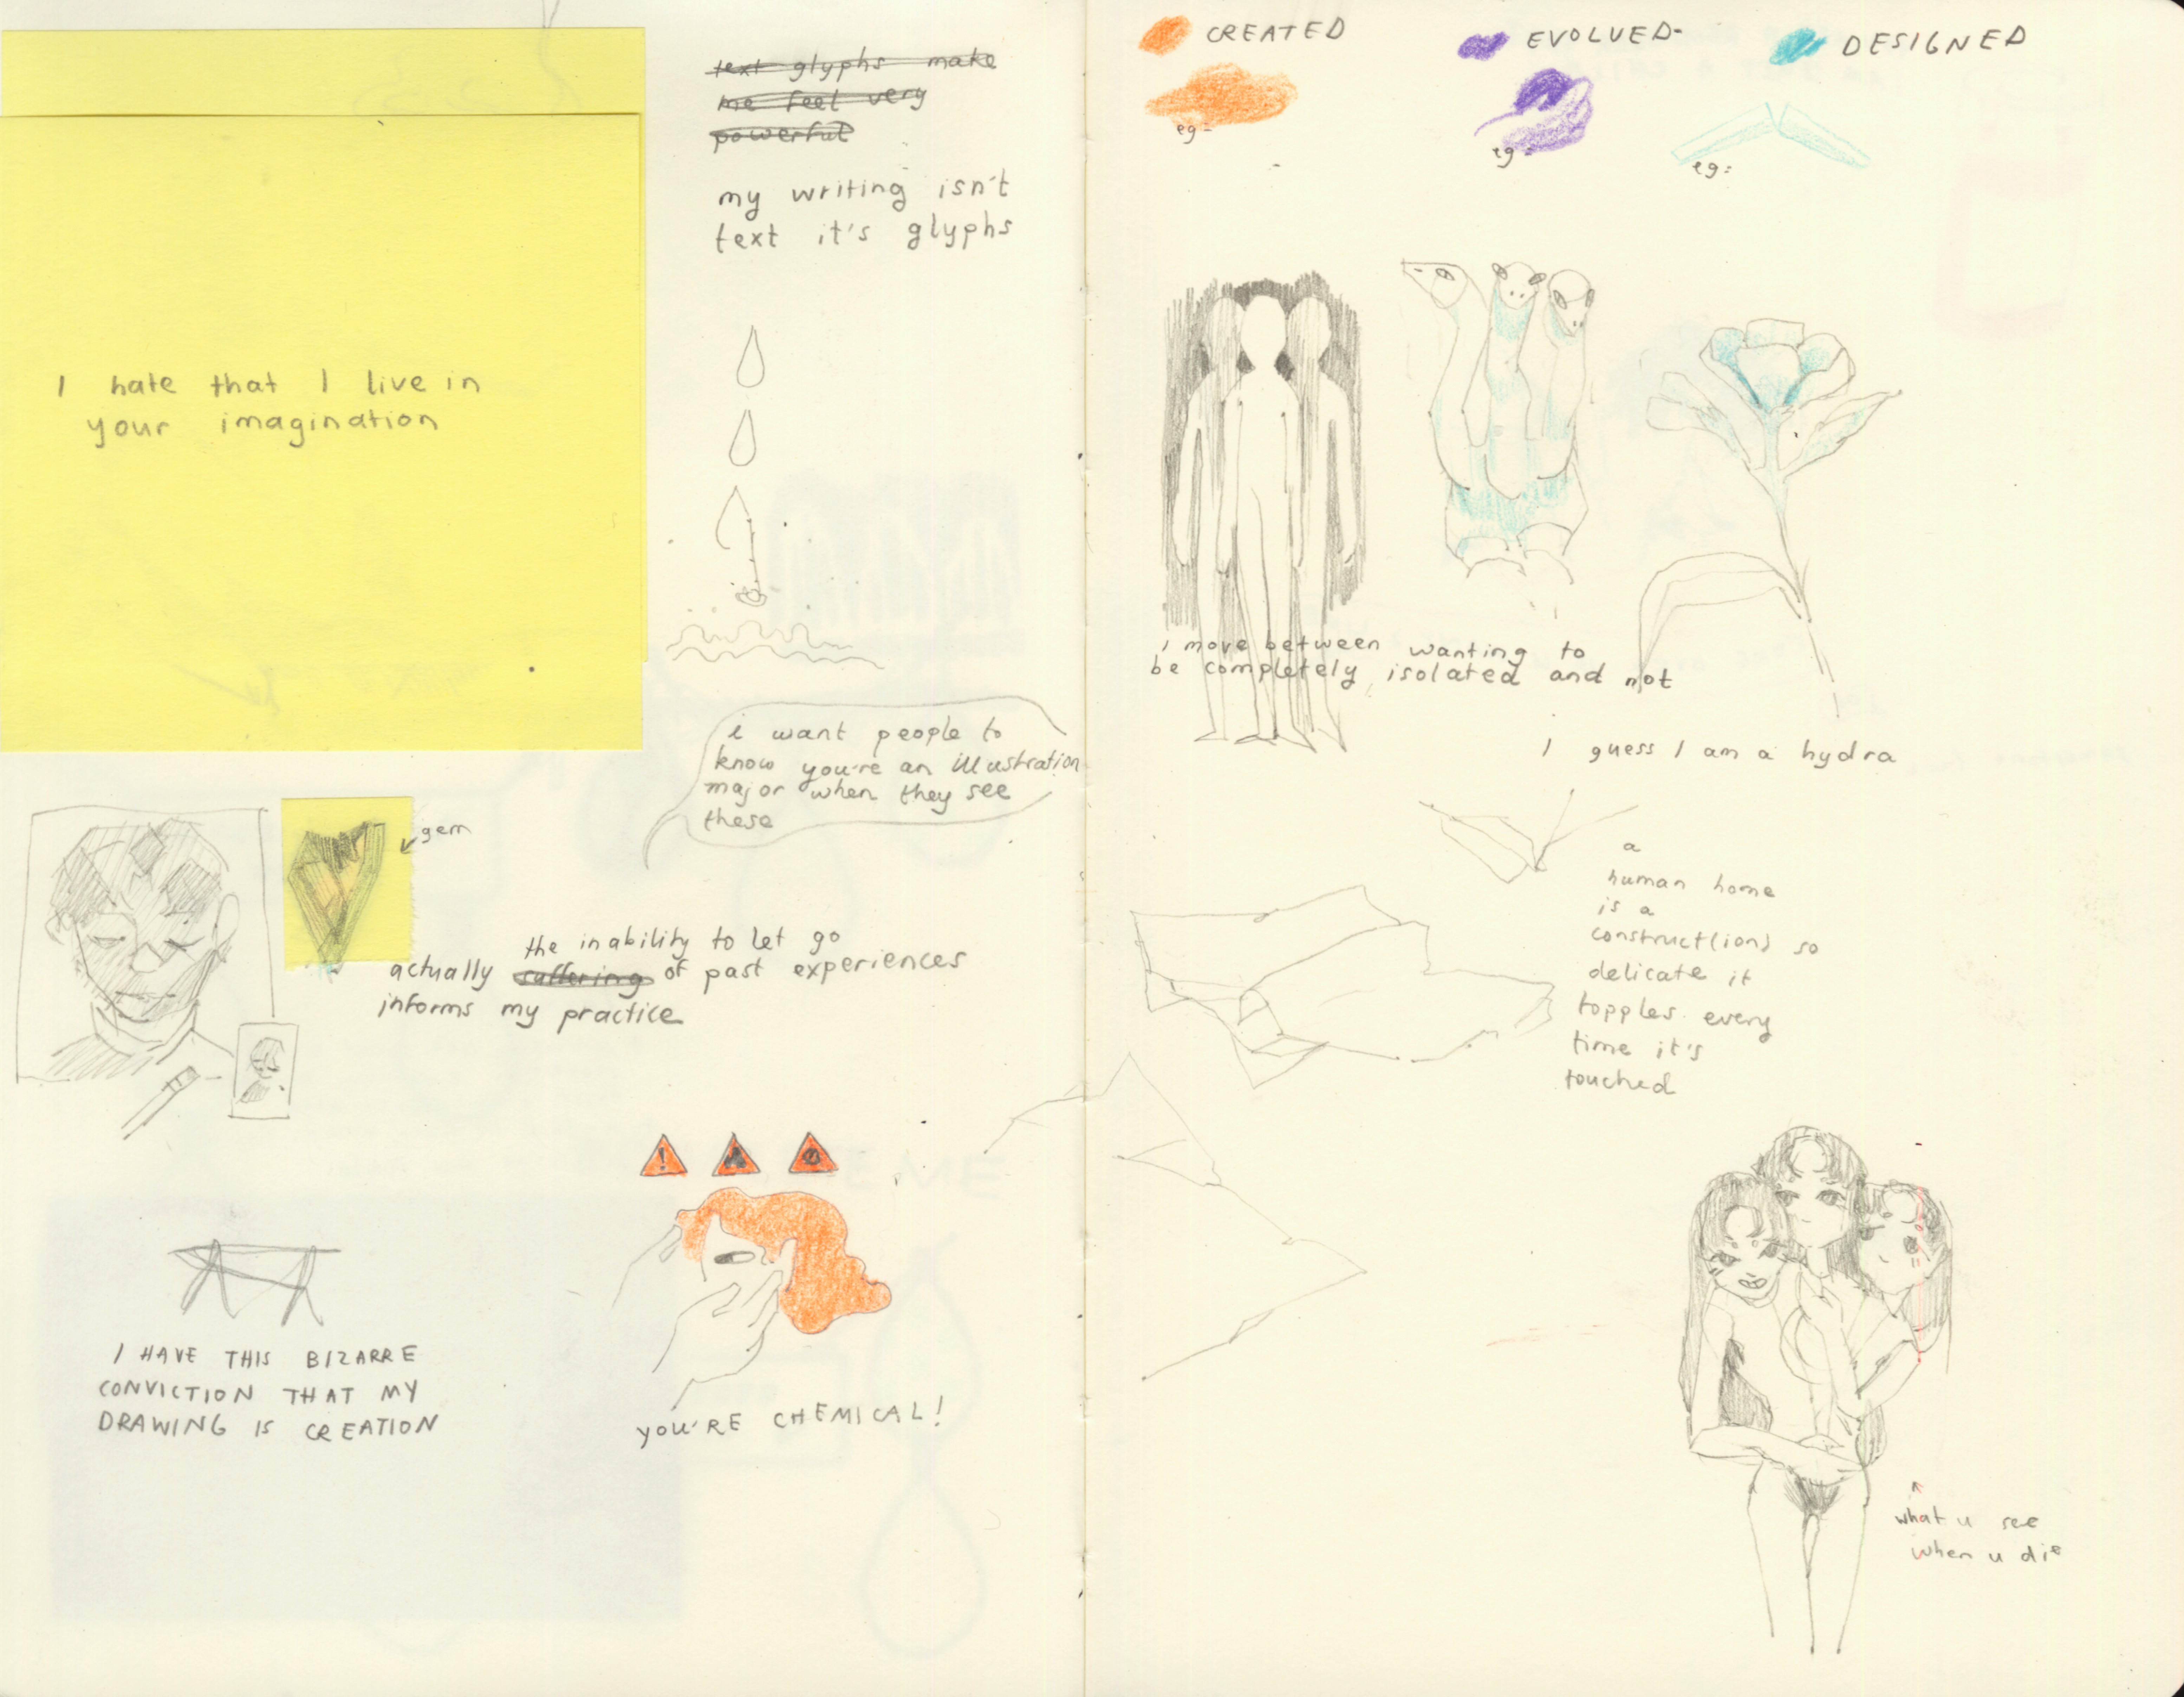 text glyphs make
me feel very
powerful
my writing isn't
text it's glyphs
I hate that I live in
your imagination
i want people to
know you're an illustration
major when they see
these
gem
the inability to let go
actually suffering of past experiences
informs my practice
!
I HAVE THIS BIZARRE
CONVICTION THAT MY
DRAWING IS CREATION
YOU'RE CHEMICAL!
CREATED
EVOLVED-
DESIGNED
eg-
eg-
eg:
i move between wanting to
be completely isolated and not
I guess I am a hydra
a
human home
is a
construct(ion) so
delicate it
topples every
time it's
touched
what u see
when u die